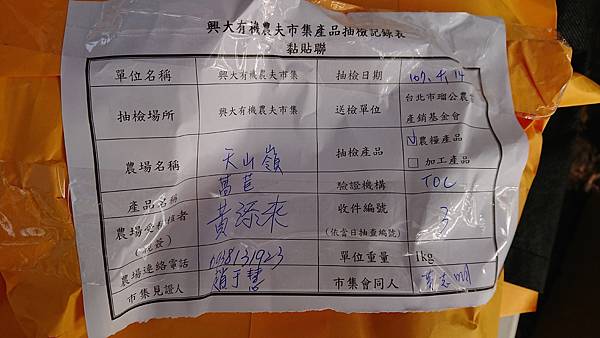 興大有機農夫市集產品抽檢記錄表
黏貼聯
單位名稱 興大有機農夫市集 抽檢日期 107. 4. 14
抽檢場所 興大有機農夫市集 送檢單位 台北市瑠公農
產銷基金會
農場名稱 天山嶺 抽檢產品 ☑農糧產品
□ 加工產品
產品名稱 萵苣 驗證機構 TOC
農場受檢核者 黃添來 收件編號 3
(依當日抽查編號)
農場連絡電話 單位重量 1kg
市集見證人 趙于慧 市集會同人